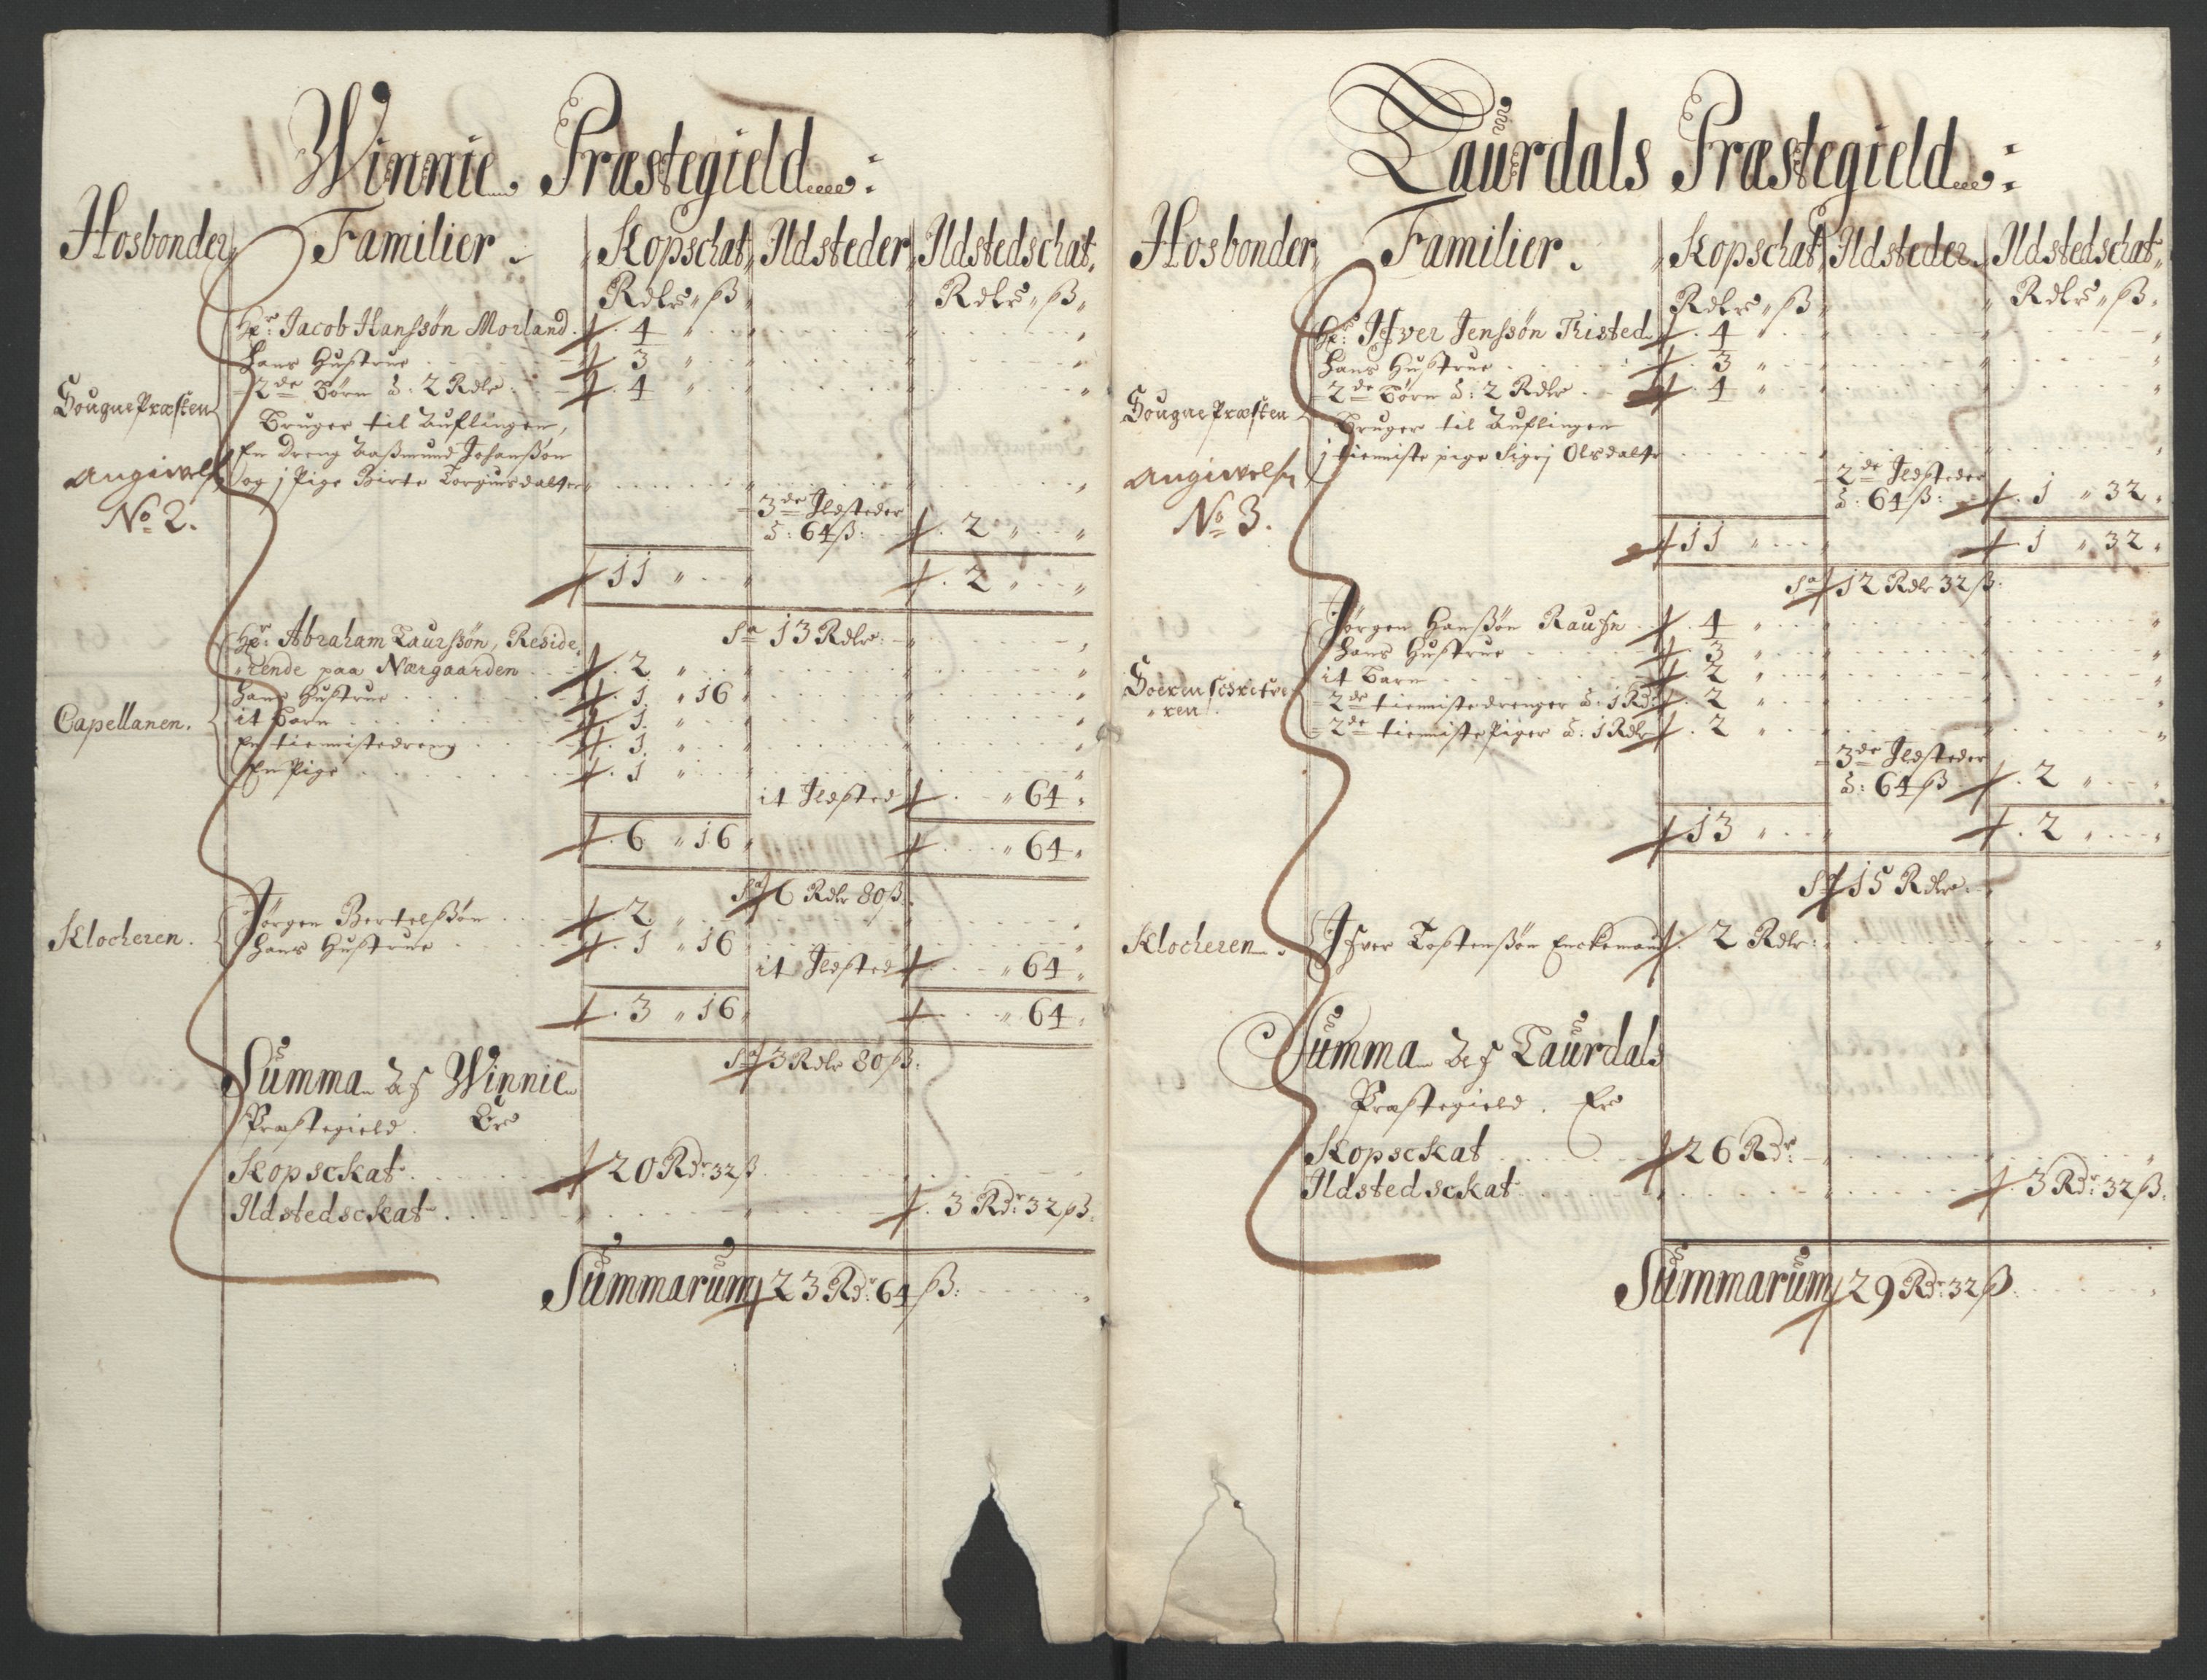 Winnie Præstegield:
Hosbonder, Familier. Kopschat, Ildsteder, Ildstedschat,
Rdlr " ß " Rdlr " ß "
Hr: Jacob Hanssøn Morland . 4 "
hans Hustrue . 3 "
2de Børn à: 2 Rdlr . 4 "
SougnePræsten
Bruger til Auflingen,
En Dreng Aaßmund Johanßøn
og j Pige Birte Torgiusdatter
Angivelse
No 2.
3de Ildsteder
à: 64 ß: . 2 "
11 " . 2 "
Sa 13 Rdlr:
Hr: Abraham Laurssøn, Reside,
rende paa Nærgaarden . 2 "
hans Hustrue . 1 " 16
Capellanen. it Barn . 1. "
En tienistedreng . 1. "
En Pige . 1 "
it Ildsted " 64 "
. 6 " 16 " " 64 "
Sa 6 Rdlr 80 ß
Klocheren. Jørgen Bertelßøn . 2. "
hans Hustrue . 1 " 16
it Ildsted " 64 "
. 3 " 16 " " 64 "
Sa 3 Rdlr 80 ß.
Summa af Winnie
Præstegield. Er
Kopsckat . 20 Rdr: 32 ß
Ildstedsckat . 3 Rdr: 32 ß.
Summarum 23 Rdr: 64 ß:
Laurdals Præstegield:
Hosbonder, Familier. Kopschat, Ildsteder, Ildstedschat,
Rdlr " ß " Rdlr " ß "
Hr: Ifver Jenssøn Tristed . 4 "
hans Hustrue . 3 "
2de Børn à: 2 Rdlr . 4 "
SougnePræsten
Bruger til Auflingen
j tieniste pige Sigrj Olsdatter
Angivelse
No 3.
2de Ildsteder
à: 64 ß: . 1 " 32 "
11 " . 1 " 32 "
Sa 12 Rdlr 32 ß:
Jørgen Hanßøn . 4 "
hans Hustrue . 3 "
it Barn . 2 "
Sorenschrifve
ren
2de tienistedrenger à: 1 Rd: . 2 "
2de tienistePiger à: 1 Rdlr . 2 "
3de Ildsteder
à: 64 ß . 2 "
13 " . 2 "
Sa 15 Rdlr.
Klocheren. Ifver Tostenßøn Enckemand 2 Rdlr:
Summa af Laurdals
Præstegield. Er
Kopsckat 26 Rdr:
Ildstedsckat . 3 Rdr: 32 ß.
Summarum 29 Rdr: 32 ß